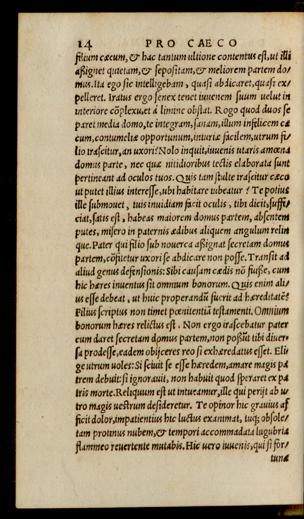 14 PRO CAECO
filium cæcum, & hac tantum ultione contentus est, ut illi
aßignet quietam, & sepositam, & meliorem partem do/
mus. Ita ego sic intellegebam, quasi abdicaret, quasi ex/
pelleret. Iratus ergo senex tenet iuuenem suum uelut in
interiore cōplexu, et à limine obstat. Rogo quod duos se
paret media domo, te integram, sanam, illum infelicem cæ
cum, contumeliæ opportunum, iniuriæ facilem, utrum fi/
lio irascitur, an uxori? Nolo inquit, iuuenis utaris amœna
domus parte, nec quæ nitidioribus tectis elaborata sunt
pertineant ad oculos tuos. Quis tam stulte irascitur cæco
ut putet illius interesse, ubi habitare iubeatur? Te potius
ille submouet, tuis inuidiam facit oculis, tibi dicit, suffi/
ciat, satis est, habeas maiorem domus partem, absentem
putes, misero in paternis ædibus aliquem angulum relin
que. Pater qui filio sub nouerca aßignat secretam domus
partem, cōfitetur uxori se abdicare non posse. Transit ad
aliud genus defensionis: Sibi causam cædis nō fuisse, cum
hic hæres inuentus sit omnium bonorum. Quis enim ali/
us esse debeat, ut huic properandū fuerit ad hæreditatē?
Filius scriptus non timet pœnitentiā testamenti. Omnium
bonorum hæres relictus est. Non ergo irascebatur pater
cum daret secretam domus partem, non possūt tibi diuer/
sa prodesse, eadem obijceres reo si exhæredatus esset. Eli/
ge utrum uoles: Si sciuit se esse hæredem, amare magis pa
trem debuit: si ignorauit, non habuit quod speraret ex pa
tris morte. Reliquum est ut intueamur, ille qui perijt ab u/
tro magis uestrum desideretur. Te opinor hic grauius af
ficit dolor, impatientius hic luctus exanimat, tuq; obsole/
tam protinus nubem, & tempori accommodata lugubria
flammeo reuertente mutabis. Hic uero iuuenis, qui si for/
tunæ